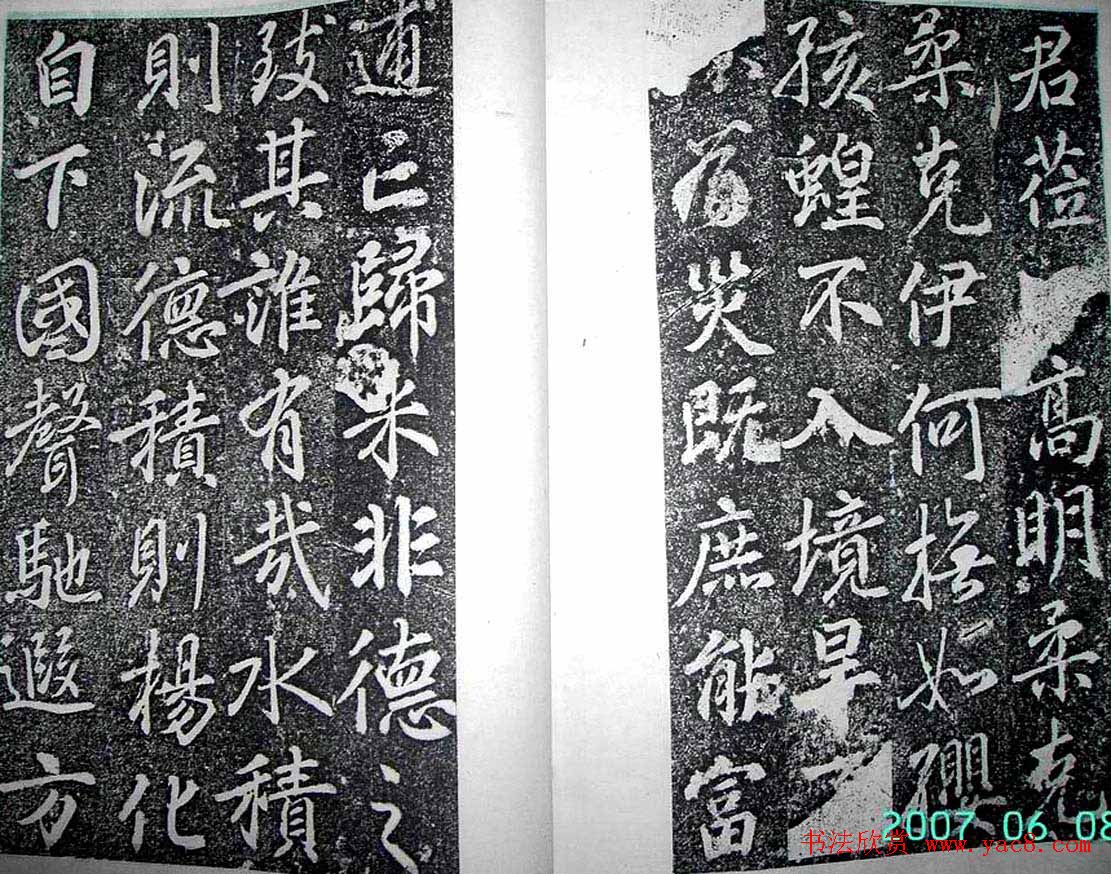 君莅高明柔克
柔克伊何撫如孾
孩蝗不入境旱
不爲災既庶能富
逋亡歸来非德之
致其誰有哉水積
則流德積則楊化
自下國聲馳遐方
2007.06.08
书法欣赏 www.yac8.com